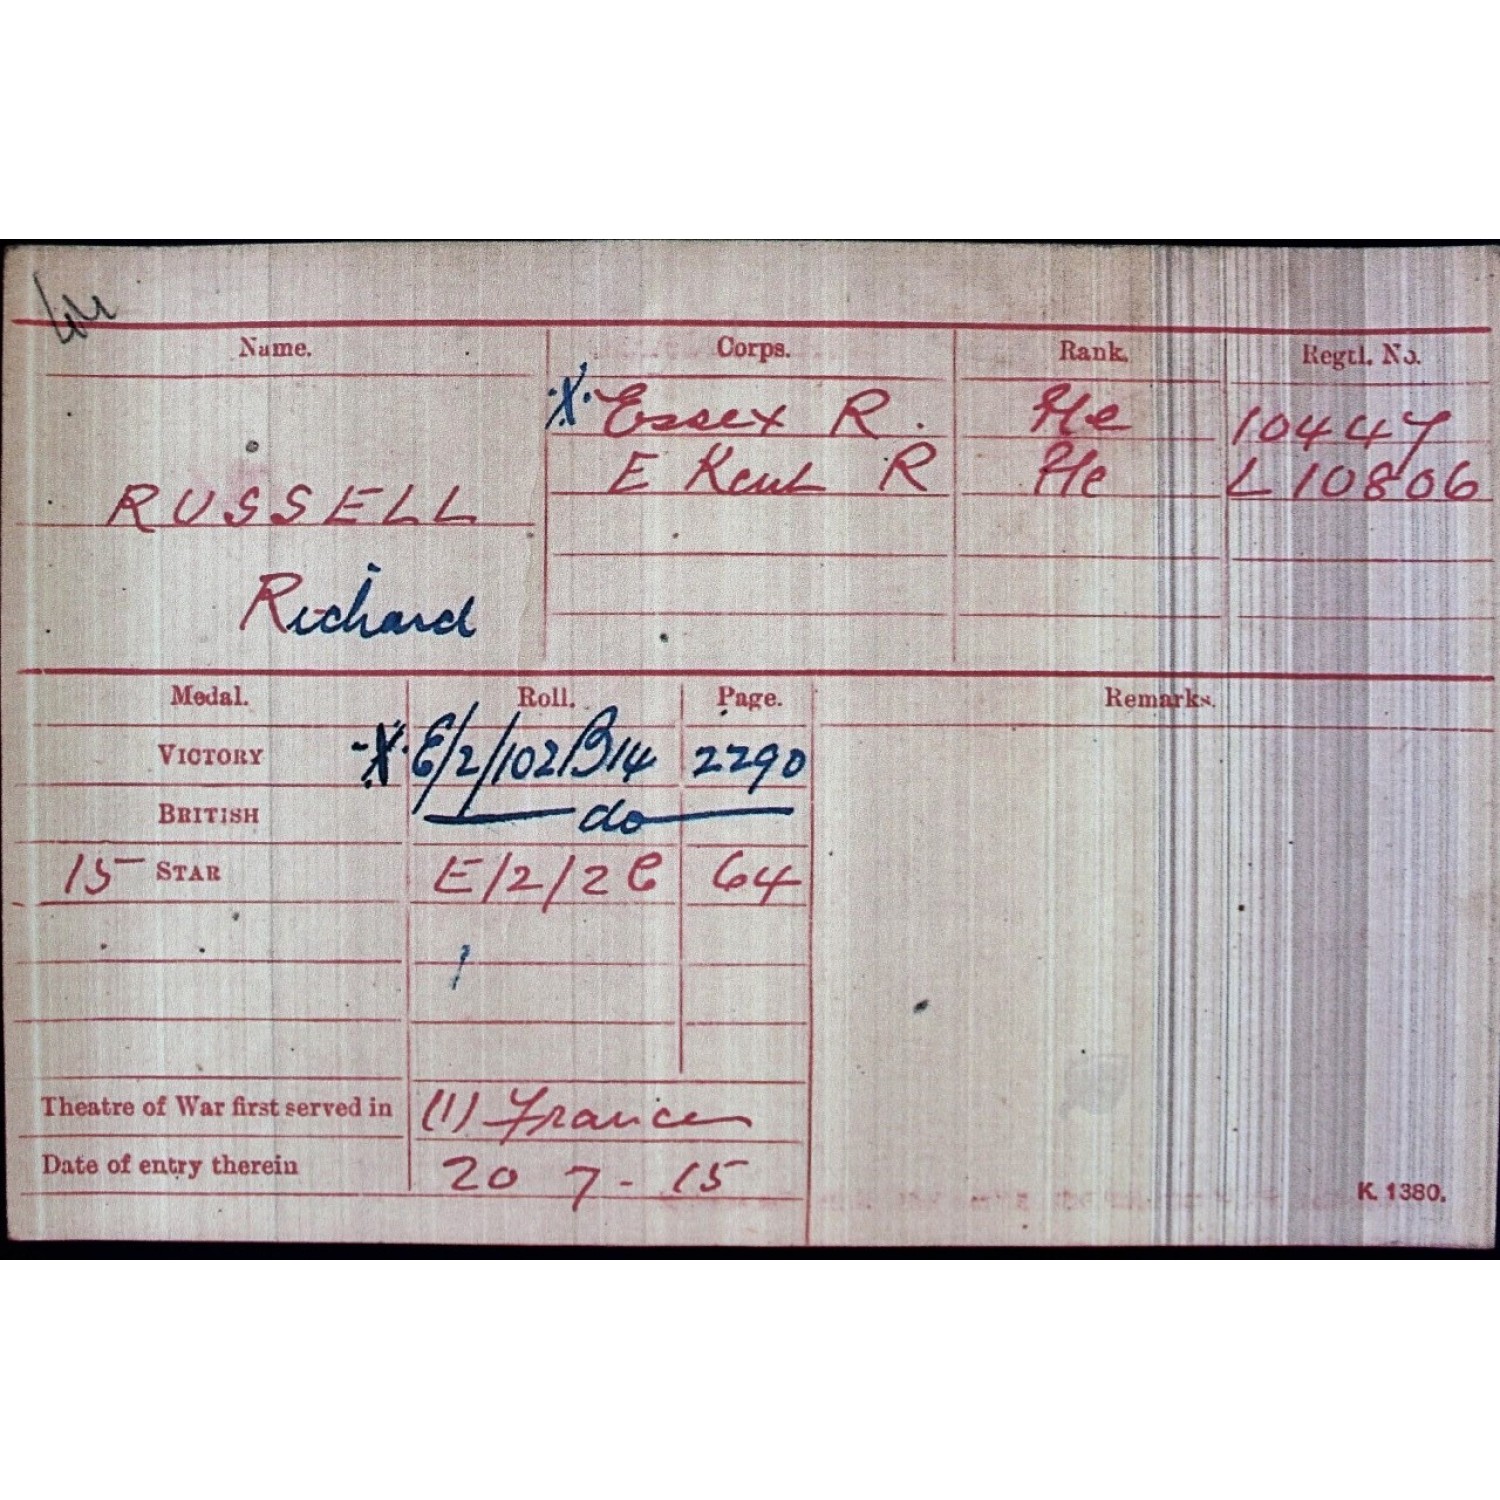 Name. Corps. Rank. Regtl. No.
·X· Essex R. Pte 10447
E Kent R Pte L 10806
RUSSELL
Richard
Medal. Roll. Page. Remarks.
VICTORY ·X· E/2/102B14 2290
BRITISH do
15 STAR E/2/2C 64
Theatre of War first served in (1) France
Date of entry therein 20 7-15
K. 1380.